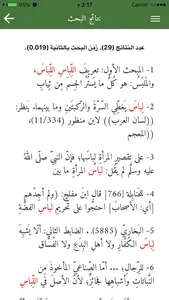 85%
2:17
نتائج البحث
عدد النتائج (29). زمن البحث بالثانية (0.019).
1- المبحث الأول: تعريف اللِّباسِ اللِّباسُ،
والمَلْبَسُ: هو كُلُّ ما يَستُرُ الجِسمَ مِن ثِيابٍ
2- لباس يُغطِّي السُّرَّةَ والرُّكبتَينِ وما بينهما، ينظر:
((لسان العرب)) لابن منظور (11/334)،
((المعجم
3- على تقصيرِ المرأةِ لباسَها؛ فإنَّ النبيَّ صلَّى اللهُ
عليه وسلَّم لم يقُل: لباسُ المرأةِ
4- للحَنابِلة [766] قال ابن مفلح: (ولم أجِدْهم
[أي: الأصحاب] احتجُّوا على تحريمِ لباسِ الفِضَّةِ
5- البخاري (5885).. الضابط الثاني: ألَّا يُشبِهَ
لباسَ الكُفَّارِ ولا أهلِ البِدَعِ ولا الفُسَّاقِ
6- للرِّجالِ، ... أمَّا الصِّناعيُّ المأخوذُ مِن
النَّباتاتِ وأشباهِها فجائِزٌ؛ لأنَّ الأصلَ في اللِّباسِ